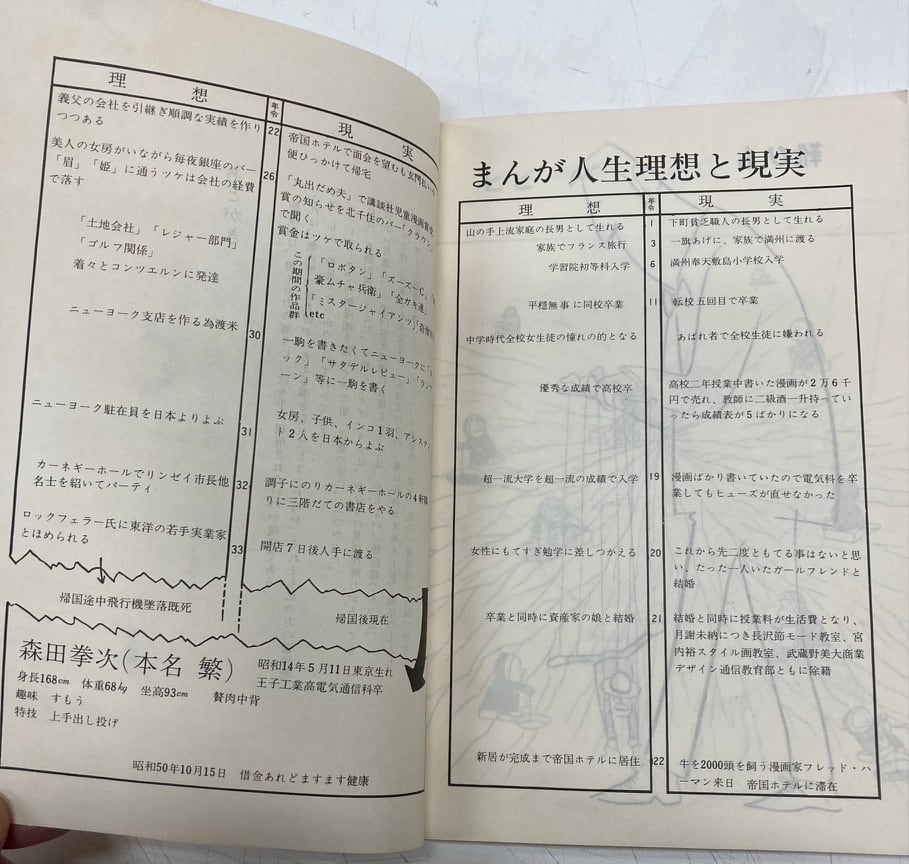 まんが人生理想と現実
理想
年令
現実
山の手上流家庭の長男として生れる
1
下町貧乏職人の長男として生れる
家族でフランス旅行
3
一旗あげに、家族で満州に渡る
学習院初等科入学
6
満州奉天敷島小学校入学
平穏無事に同校卒業
11
転校五回目で卒業
中学時代全校女生徒の憧れの的となる
あばれ者で全校生徒に嫌われる
優秀な成績で高校卒
高校二年授業中書いた漫画が2万6千
円で売れ、教師に二級酒一升持ってい
ったら成績表が5ばかりになる
超一流大学を超一流の成績で入学
19
漫画ばかり書いていたので電気科を卒
業してもヒューズが直せなかった
女性にもてすぎ勉学に差しつかえる
20
これから先二度ともてる事はないと思
い、たった一人いたガールフレンドと
結婚
卒業と同時に資産家の娘と結婚
21
結婚と同時に授業料が生活費となり、
月謝未納につき長沢節モード教室、宮
内裕スタイル画教室、武蔵野美大商業
デザイン通信教育部ともに除籍
新居が完成まで帝国ホテルに居住
22
牛を2000頭を飼う漫画家フレッド・ハ
ーマン来日 帝国ホテルに滞在
理想
年令
現実
義父の会社を引継ぎ順調な実績を作り
つつある
22
帝国ホテルで面会を望むも玄関払い
便ひっかけて帰宅
美人の女房がいながら毎夜銀座のバー
「眉」「姫」に通うツケは会社の経費
で落す
26
「丸出だめ夫」で講談社児童漫画
賞の知らせを北千住のバー「クラウン
で聞く
賞金はツケで取られる
「土地会社」「レジャー部門」
「ゴルフ関係」
着々とコンツエルンに発達
この期間の作品群
「ロボタン」「ズーズーC」
豪ムチャ兵衛」「全ガキ連」
「ミスタージャイアンツ」
etc
ニューヨーク支店を作る為渡米
30
一駒を書きたくてニューヨークに
ック」「サタデルレビュー」「ラン
ーン」等に一駒を書く
ニューヨーク駐在員を日本よりよぶ
31
女房、子供、インコ1羽、アシスタン
ト2人を日本からよぶ
カーネギーホールでリンゼイ市長他
名士を紹いてパーティ
32
調子にのりカーネギーホールの4軒
りに三階だての書店をやる
ロックフェラー氏に東洋の若手実業家
とほめられる
33
開店7日後人手に渡る
帰国途中飛行機墜落既死
帰国後現在
森田拳次(本名 繁)
昭和14年5月11日東京生れ
王子工業高電気通信科卒
身長168cm 体重68kg 坐高93cm 贅肉中背
趣味 すもう
特技 上手出し投げ
昭和50年10月15日 借金あれどますます健康